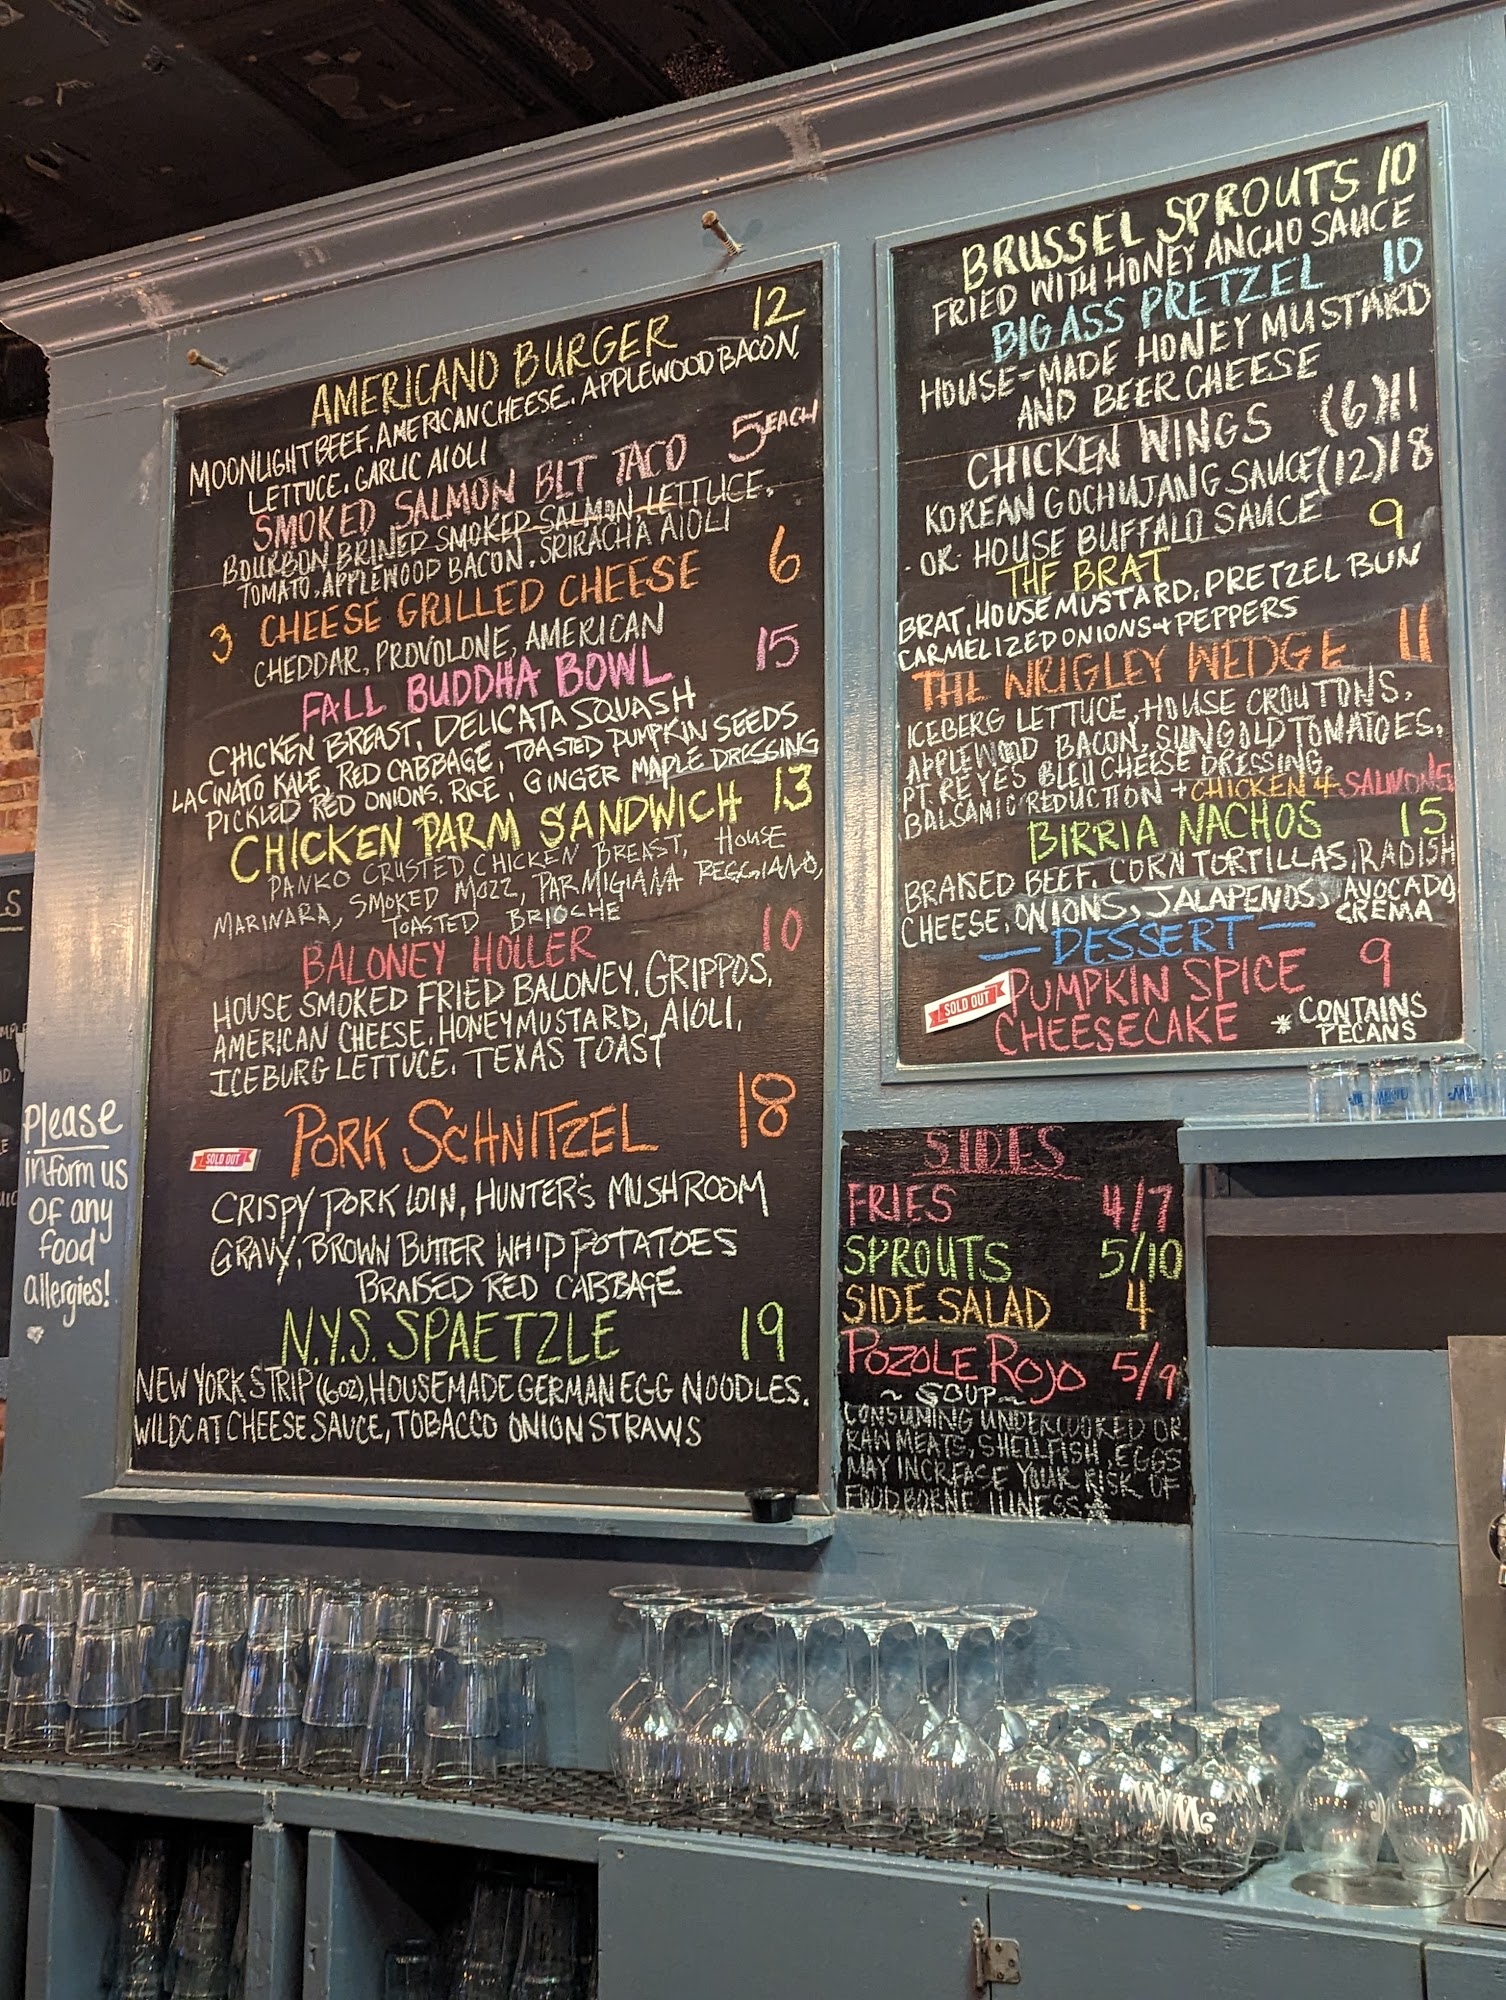 AMERICANO BURGER 12
MOONLIGHT BEEF, AMERICAN CHEESE, APPLEWOOD BACON,
LETTUCE, GARLIC AIOLI
SMOKED SALMON BLT TACO 5 EACH
BOURBON BRINED SMOKED SALMON, LETTUCE,
TOMATO, APPLEWOOD BACON, SRIRACHA AIOLI
3 CHEESE GRILLED CHEESE 6
CHEDDAR, PROVOLONE, AMERICAN
FALL BUDDHA BOWL 15
CHICKEN BREAST, DELICATA SQUASH
LACINATO KALE, RED CABBAGE, TOASTED PUMPKIN SEEDS
PICKLED RED ONIONS, RICE, GINGER MAPLE DRESSING
CHICKEN PARM SANDWICH 13
PANKO CRUSTED CHICKEN BREAST, HOUSE
MARINARA, SMOKED MOZZ, PARMIGIANA REGGIANO,
TOASTED BRIOCHE
BALONEY HOLLER 10
HOUSE SMOKED FRIED BALONEY, GRIPPOS,
AMERICAN CHEESE, HONEY MUSTARD, AIOLI,
ICEBURG LETTUCE, TEXAS TOAST
SOLD OUT
PORK SCHNITZEL 18
CRISPY PORK LOIN, HUNTER'S MUSHROOM
GRAVY, BROWN BUTTER WHIP POTATOES
BRAISED RED CABBAGE
N.Y.S. SPAETZLE 19
NEW YORK STRIP (6oz), HOUSEMADE GERMAN EGG NOODLES,
WILDCAT CHEESE SAUCE, TOBACCO ONION STRAWS
BRUSSEL SPROUTS 10
FRIED WITH HONEY ANCHO SAUCE
BIG ASS PRETZEL 10
HOUSE-MADE HONEY MUSTARD
AND BEER CHEESE
CHICKEN WINGS (6) 11
KOREAN GOCHUJANG SAUCE (12) 18
OR HOUSE BUFFALO SAUCE
THE BRAT 9
BRAT, HOUSE MUSTARD, PRETZEL BUN
CARMELIZED ONIONS + PEPPERS
THE WRIGLEY WEDGE 11
ICEBERG LETTUCE, HOUSE CROUTONS,
APPLEWOOD BACON, SUNGOLD TOMATOES,
PT. REYES BLEU CHEESE DRESSING,
BALSAMIC REDUCTION + CHICKEN 4 SALMON 5
BIRRIA NACHOS 15
BRAISED BEEF, CORN TORTILLAS, RADISH
CHEESE, ONIONS, JALAPENOS, AVOCADO
CREMA
— DESSERT —
SOLD OUT
PUMPKIN SPICE 9
CHEESECAKE * CONTAINS
PECANS
SIDES
FRIES 4/7
SPROUTS 5/10
SIDE SALAD 4
POZOLE ROJO 5/9
~ SOUP ~
CONSUMING UNDERCOOKED OR
RAW MEATS, SHELLFISH, EGGS
MAY INCREASE YOUR RISK OF
FOODBORNE ILLNESS
Please
inform us
of any
food
allergies!